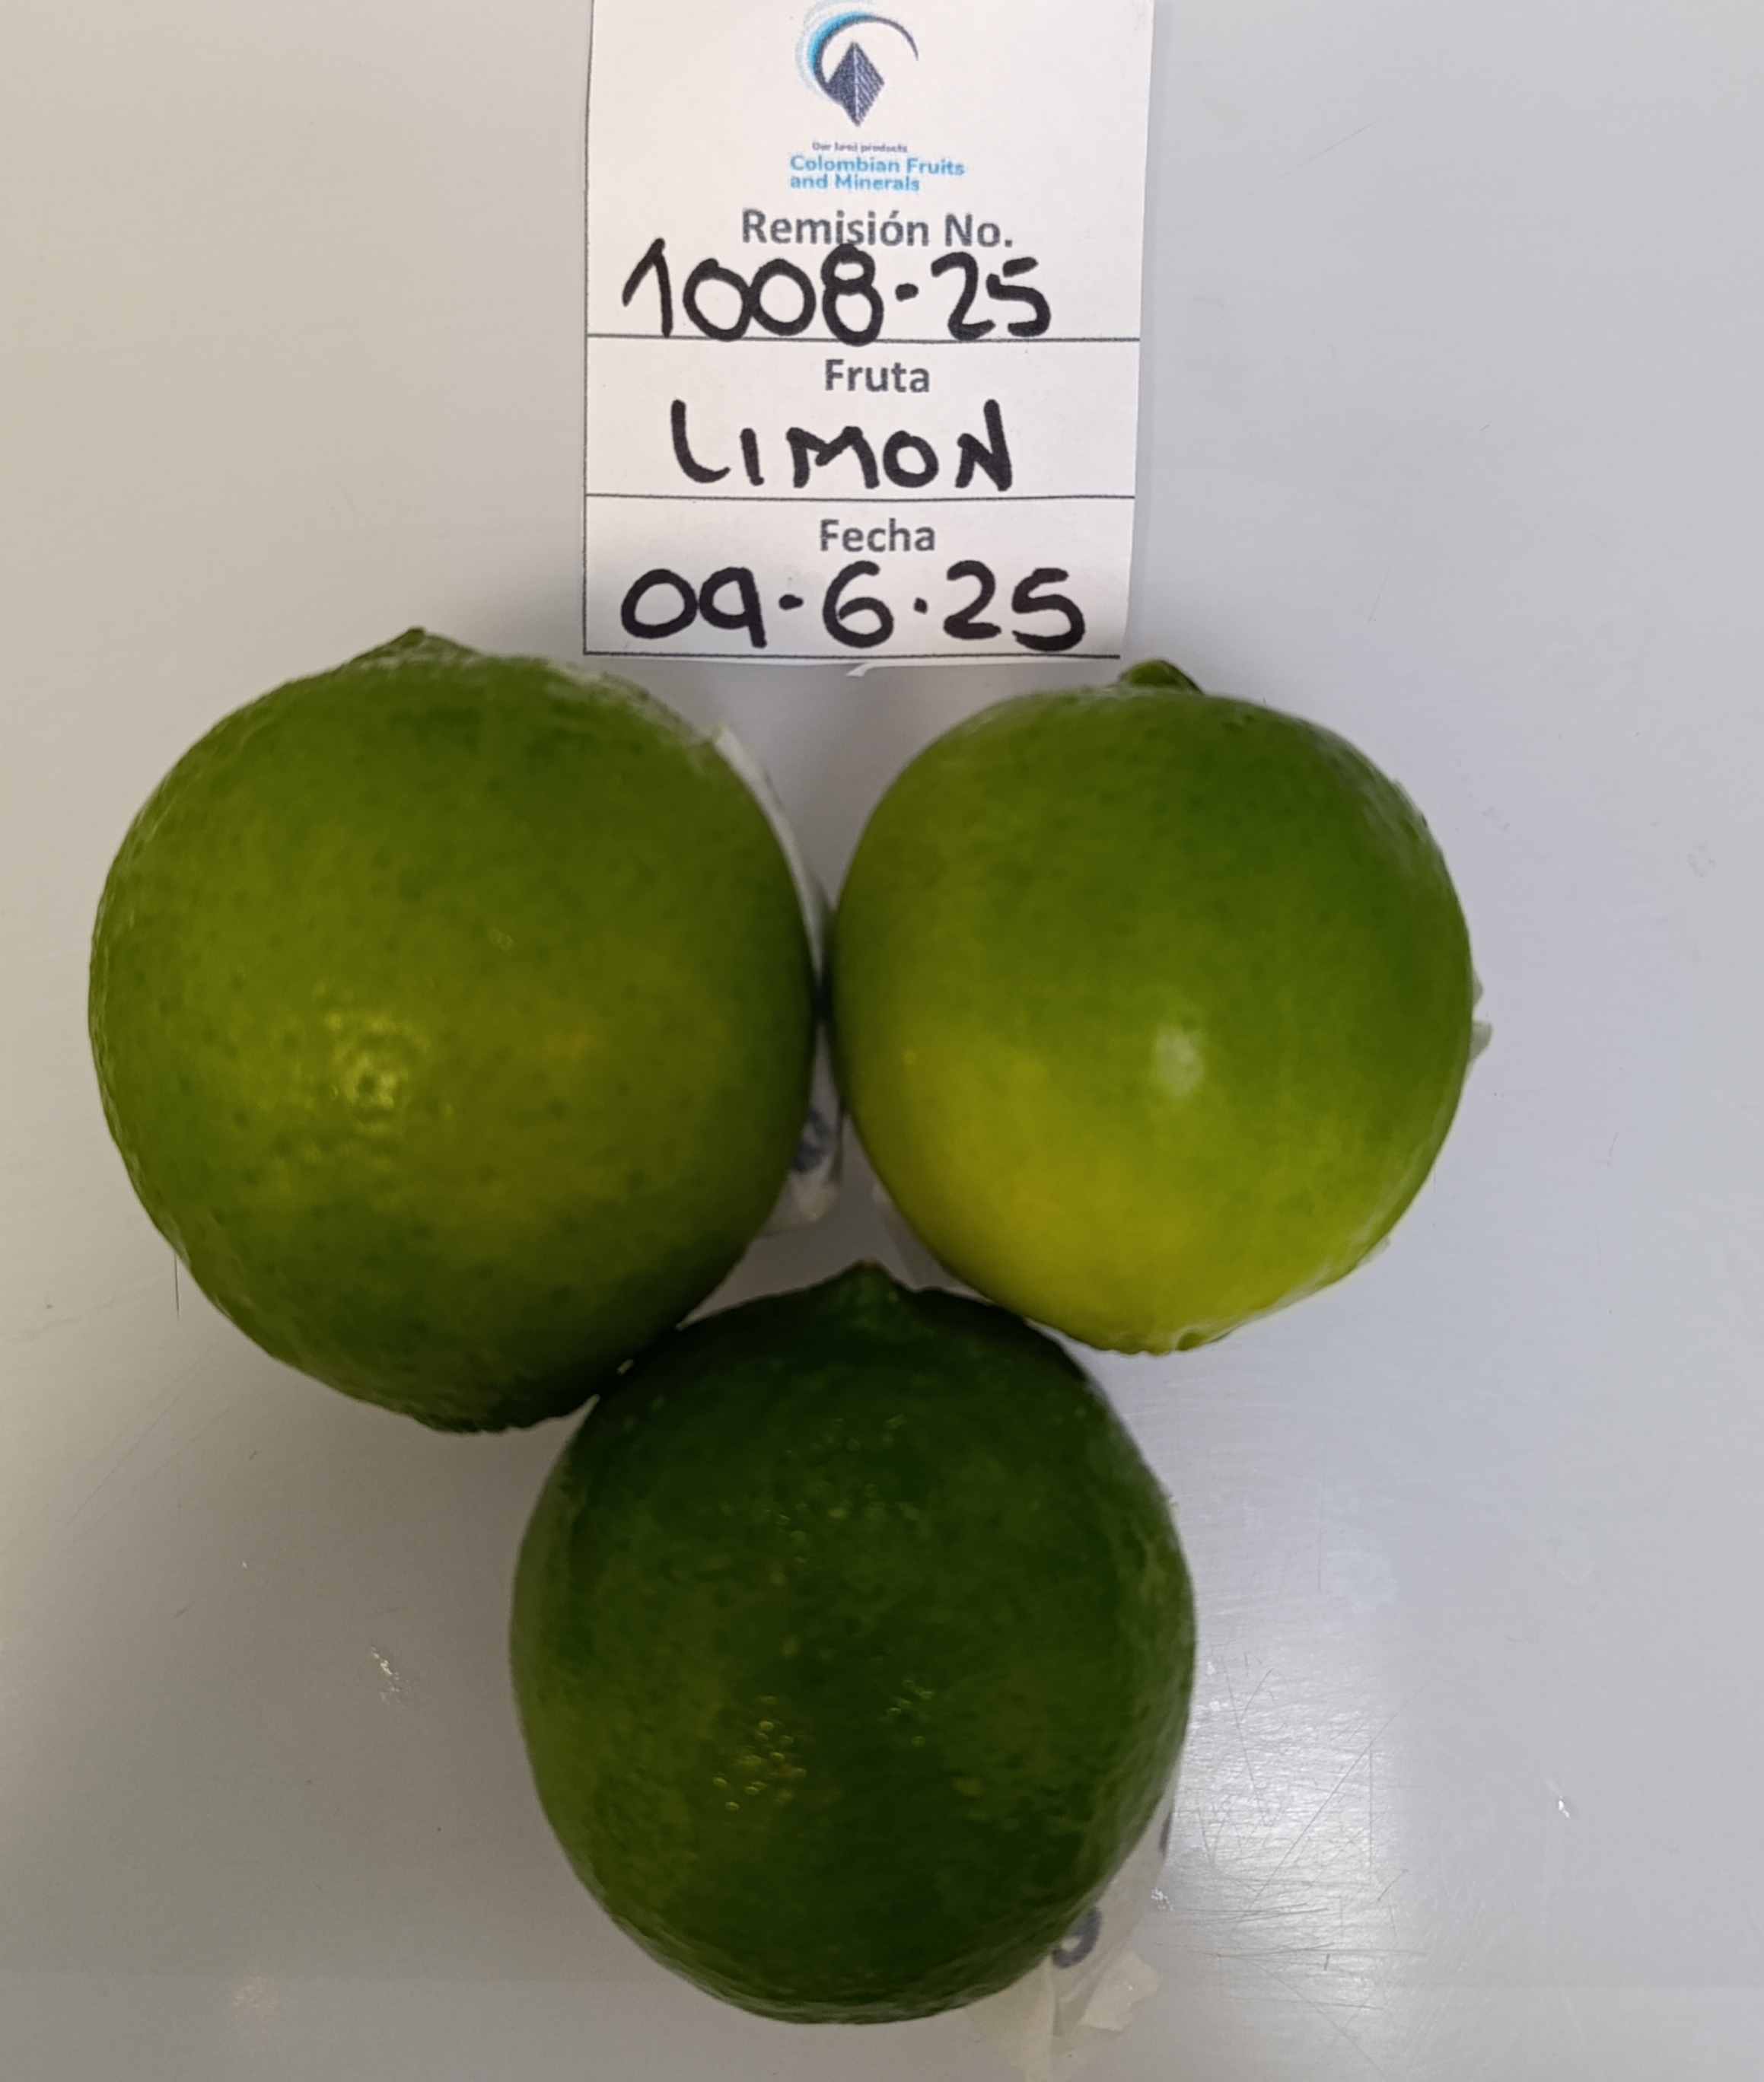 Our best products
Colombian Fruits
and Minerals
Remisión No.
1008-25
Fruta
LIMON
Fecha
09-6-25